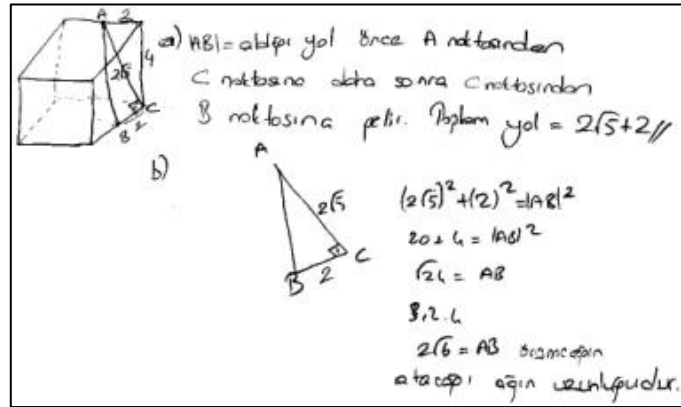 A 2
4
2√5
C
B 2
a) |AB| = aldığı yol önce A noktasından
C noktasına daha sonra C noktasından
B noktasına gelir. Toplam yol = 2√5+2//
b)
A
2√5
C
B 2
(2√5)²+(2)²=|AB|²
20+4 = |AB|²
√24 = AB
2√6 = AB örümceğin
atacağı ağın uzunluğudur.